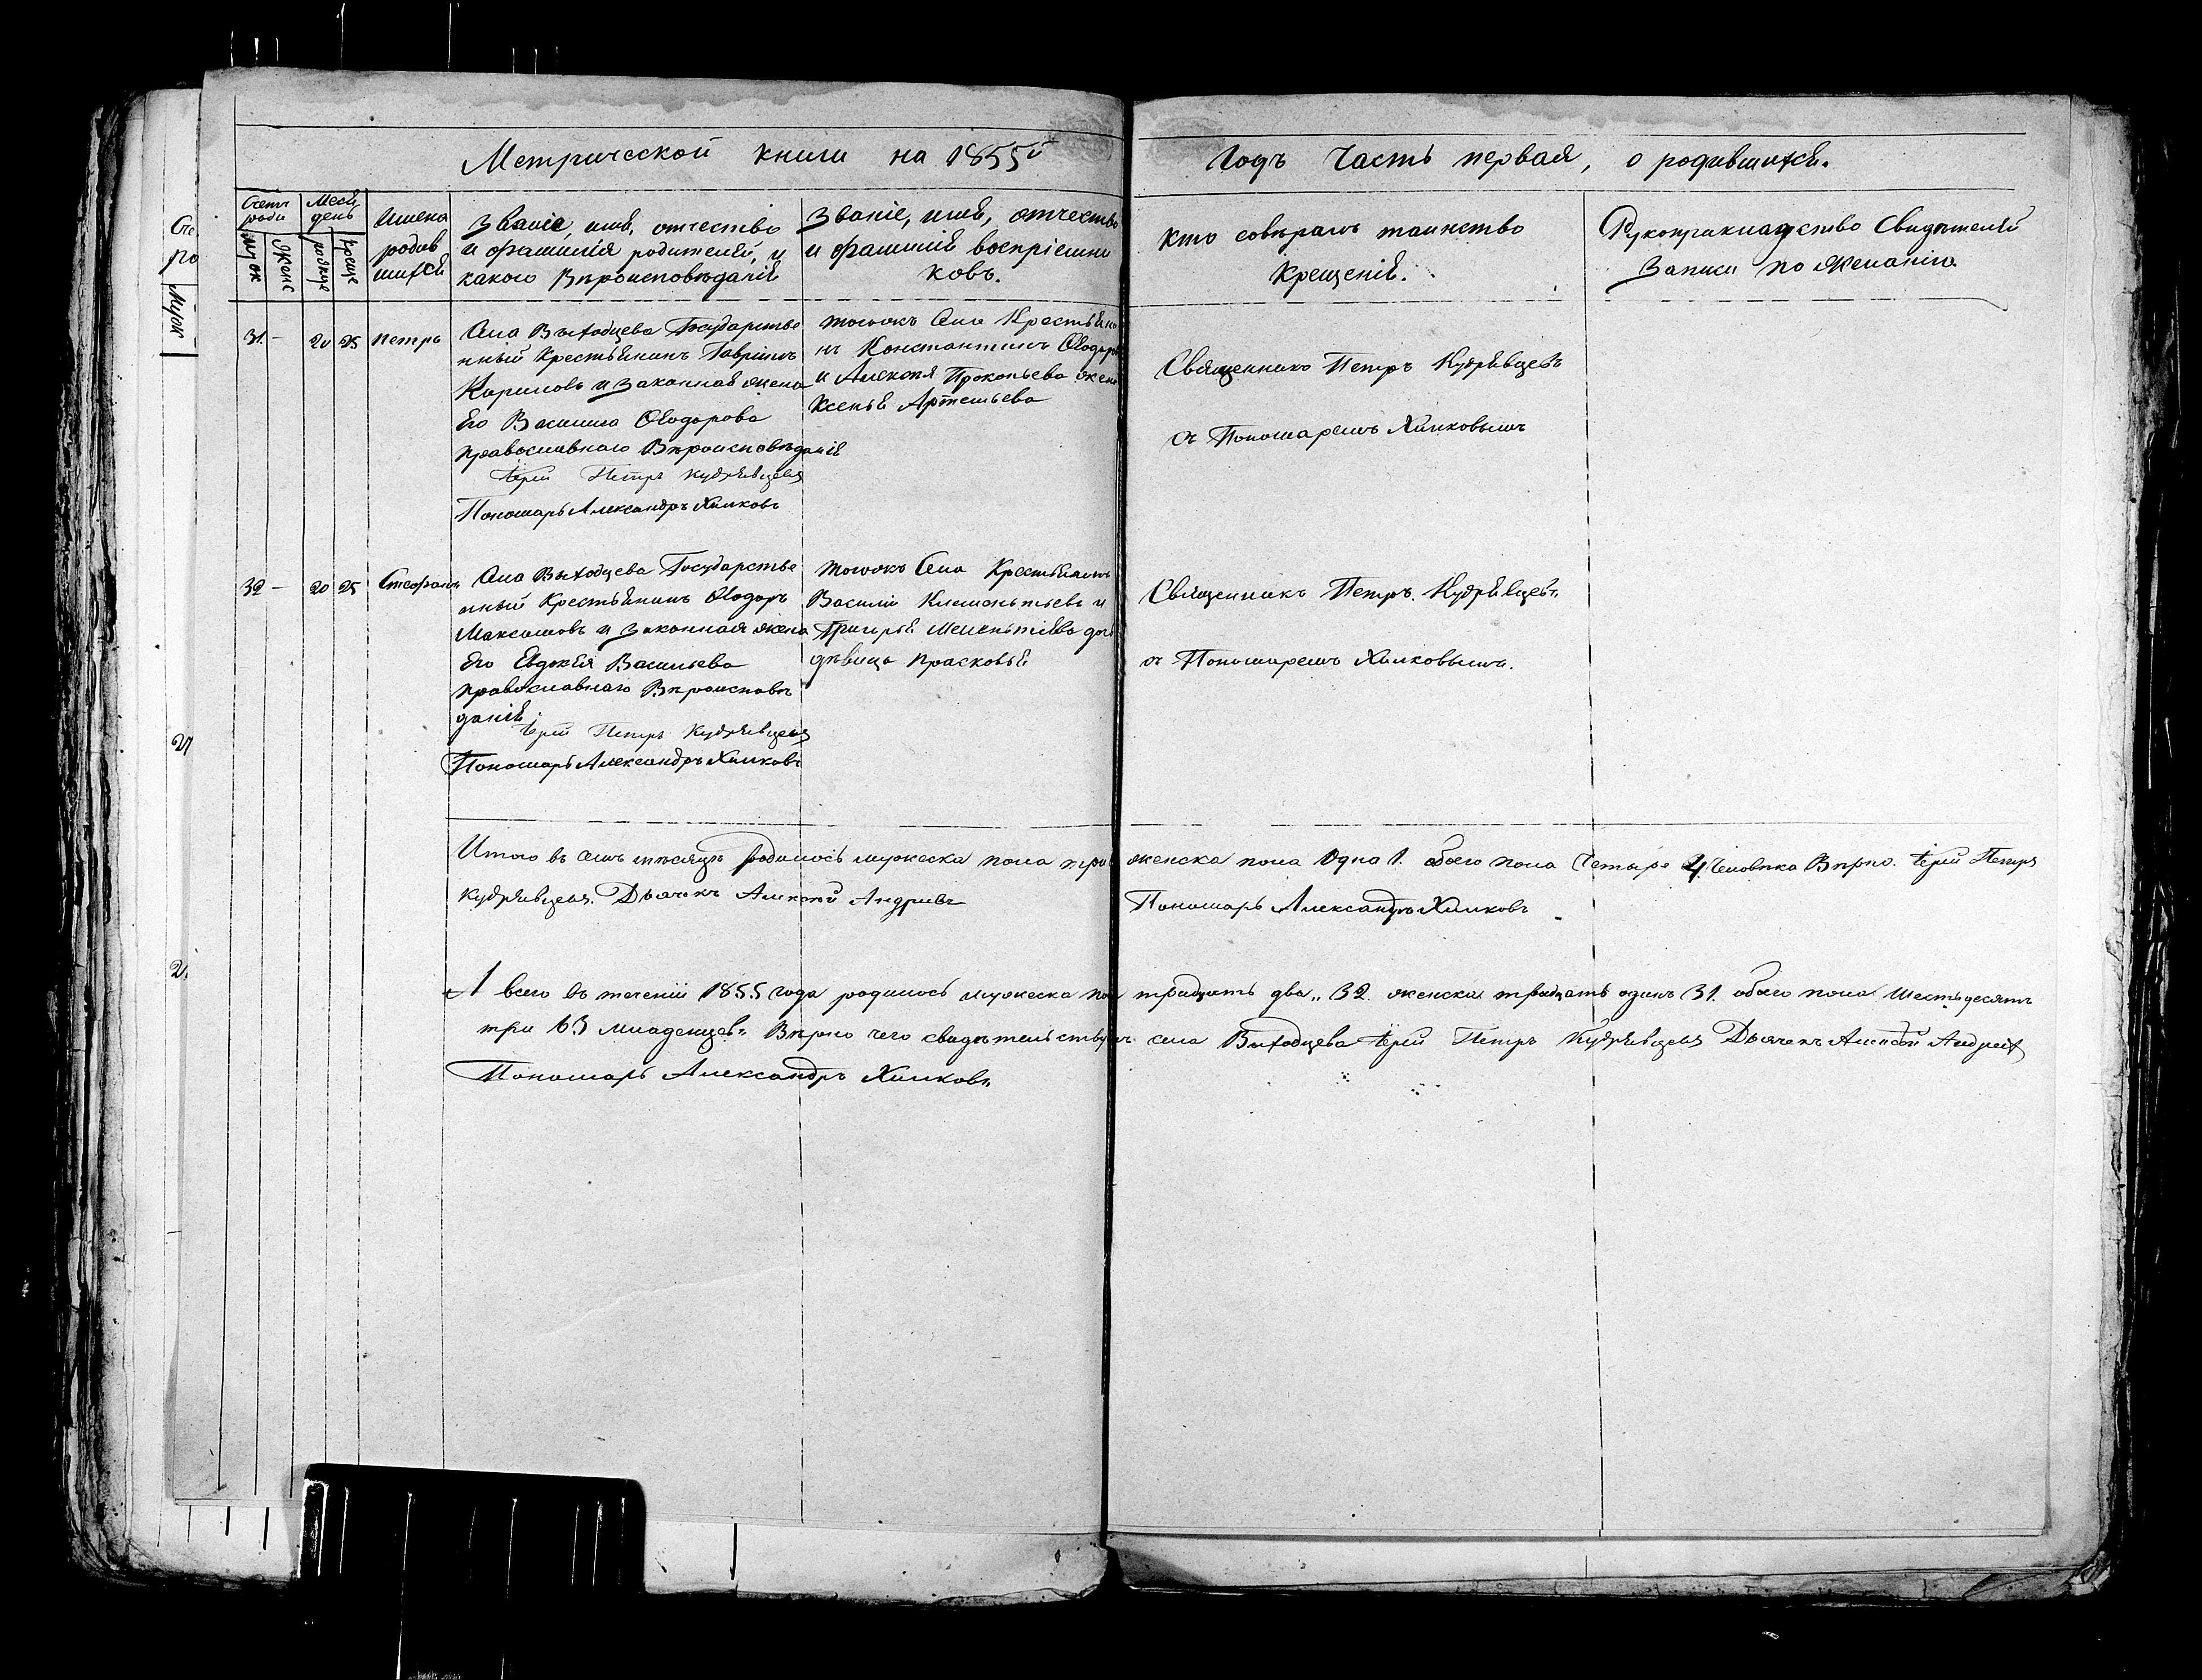 Метрической книги на 1855й
Годъ Часть первая, о родившихся.
Счетъ роди
Месяц день
Имена родив шихся
Муж
Женс
рожде
креще
Званіе, имя, отчество
и фамилія родителей, и
какого Вѣроисповѣданія
Званіе, имя, отчество
и фамилія воспріемни
ковъ.
Кто совершалъ таинство
Крещенія.
Рукоприкладство Свидѣтелей
Записи по желанію
31. – 20 25 Петръ
Села Выходцева Государстве
нный Крестьянинъ Гаврiилъ
Кириловъ и законная жена
Его Василиса Ѳеодорова
православнаго Вѣроисповѣданія
Іерей Петръ Кудрявцевъ
Пономарь Александръ Хилковъ
Тогожъ Села Крестьяни
нъ Константинъ Ѳеодоро
и Алексѣя Прокопьева жена
Ксенья Артемьева
Священникъ Петръ Кудрявцевъ
съ Пономаремъ Хилковымъ
32 – 20 25 Стефанъ
Села Выходцева Государстве
нный Крестьянинъ Ѳеодоръ
Максимовъ и законная жена
Его Евдокія Васильева
православнаго Вѣроисповѣ
данія
Іерей Петръ Кудрявцевъ
Пономарь Александръ Хилковъ
Тогожъ Села Крестьянинъ
Василій Клементьевъ и
Григорья Мелентіева доч
дѣвица Прасковья
Священникъ Петръ Кудрявцевъ
съ Пономаремъ Хилковымъ.
Итого въ семъ мѣсяцѣ родилось мужеска пола три женска пола Одна 1. обоего пола Четыре 4 Человѣка Вѣрно. Іерей Петръ
Кудрявцевъ. Дьячекъ Алексѣй Андреевъ Пономарь Александръ Хилковъ
А всего въ теченіи 1855 года родилось мужеска пол тридцать два „ 32. женска тридцать одинъ 31. обоего пола Шестьдесятъ
три 63 младенцевъ Вѣрно чего свидѣтельствуемъ села Выходцева Іерей Петръ Кудрявцевъ Дьячекъ Алексѣй Андреев
Пономарь Александръ Хилковъ